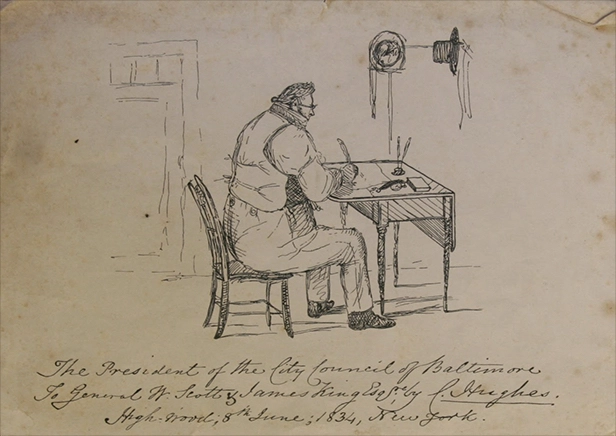 The President of the City Council of Baltimore
To General W. Scott & James King Esqr. by C. Hughes.
High-wood; 8th June; 1834, New York.